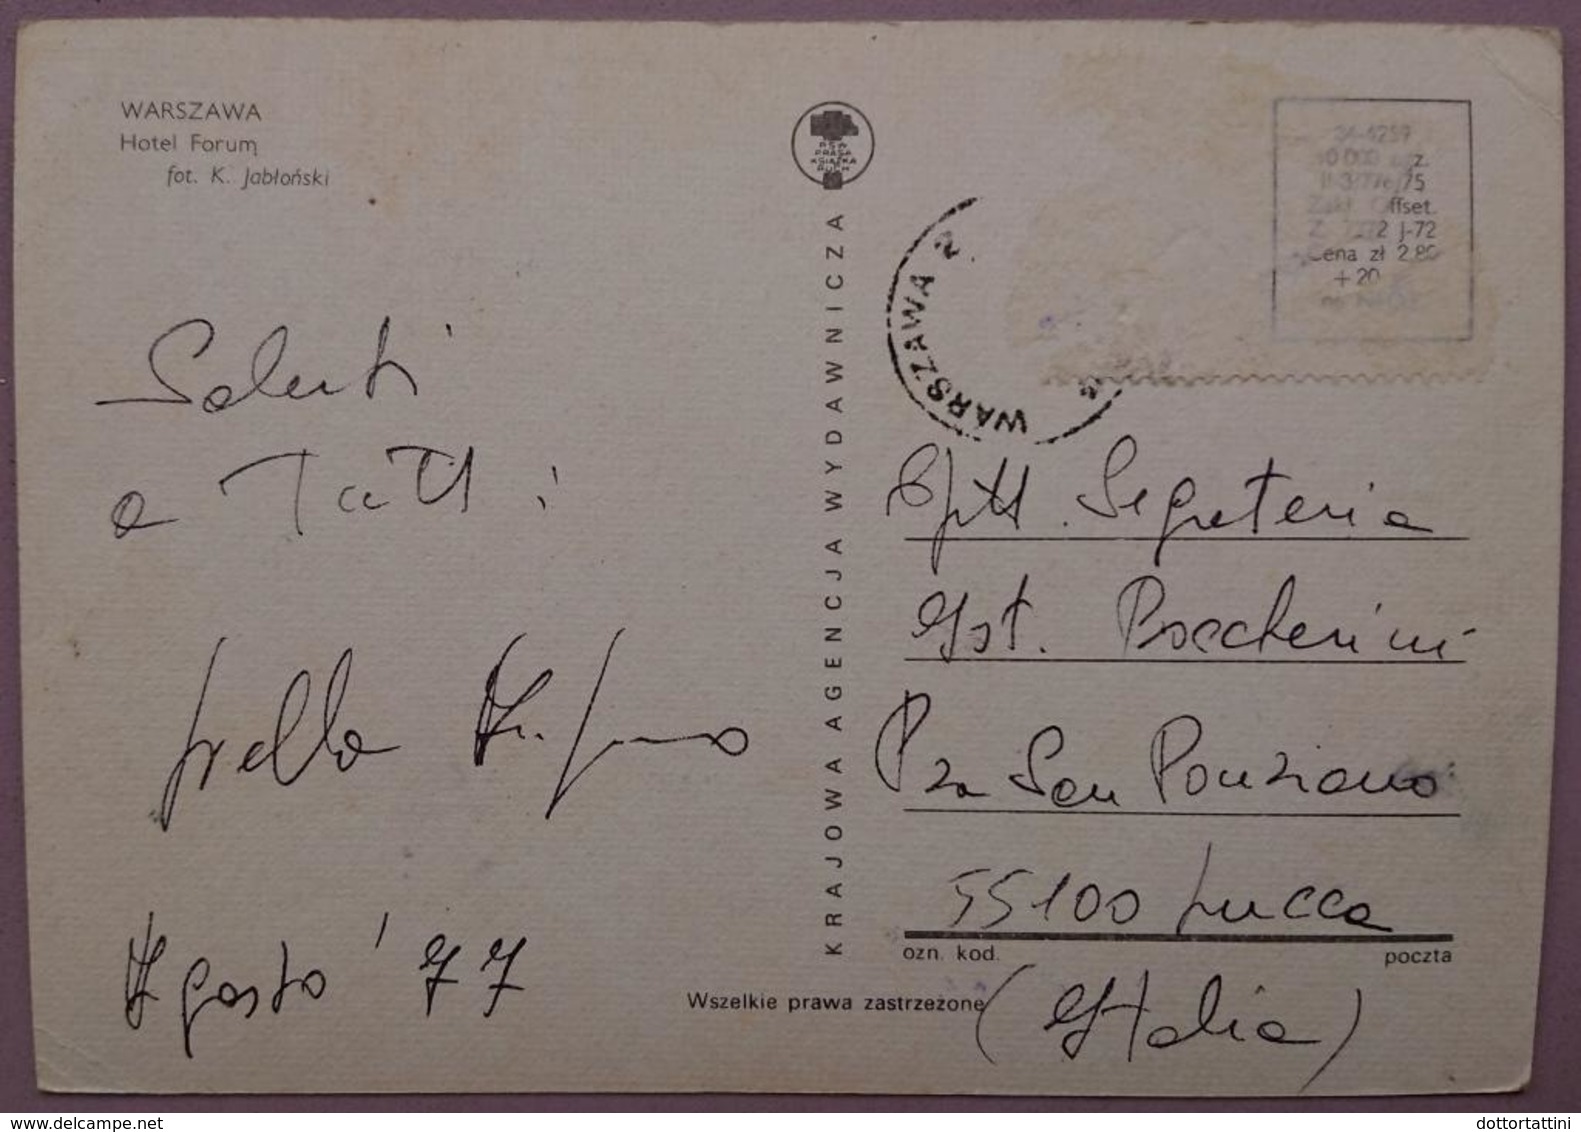 WARSZAWA
Hotel Forum
fot. K. Jabłoński
Saluti
a Tutti
Agosto '77
KRAJOWA AGENCJA WYDAWNICZA
RSW
PRASA
KSIĄŻKA
RUCH
WARSZAWA 2
34-4259
z.
II-3/776/75
Zakł. Offset.
J-72
Cena zł 2,80
+ 20
Spett. Segreteria
Ist. Boccherini
Pza San Ponziano
55100 Lucca
ozn. kod. poczta
(Italia)
Wszelkie prawa zastrzeżone
dottortattini